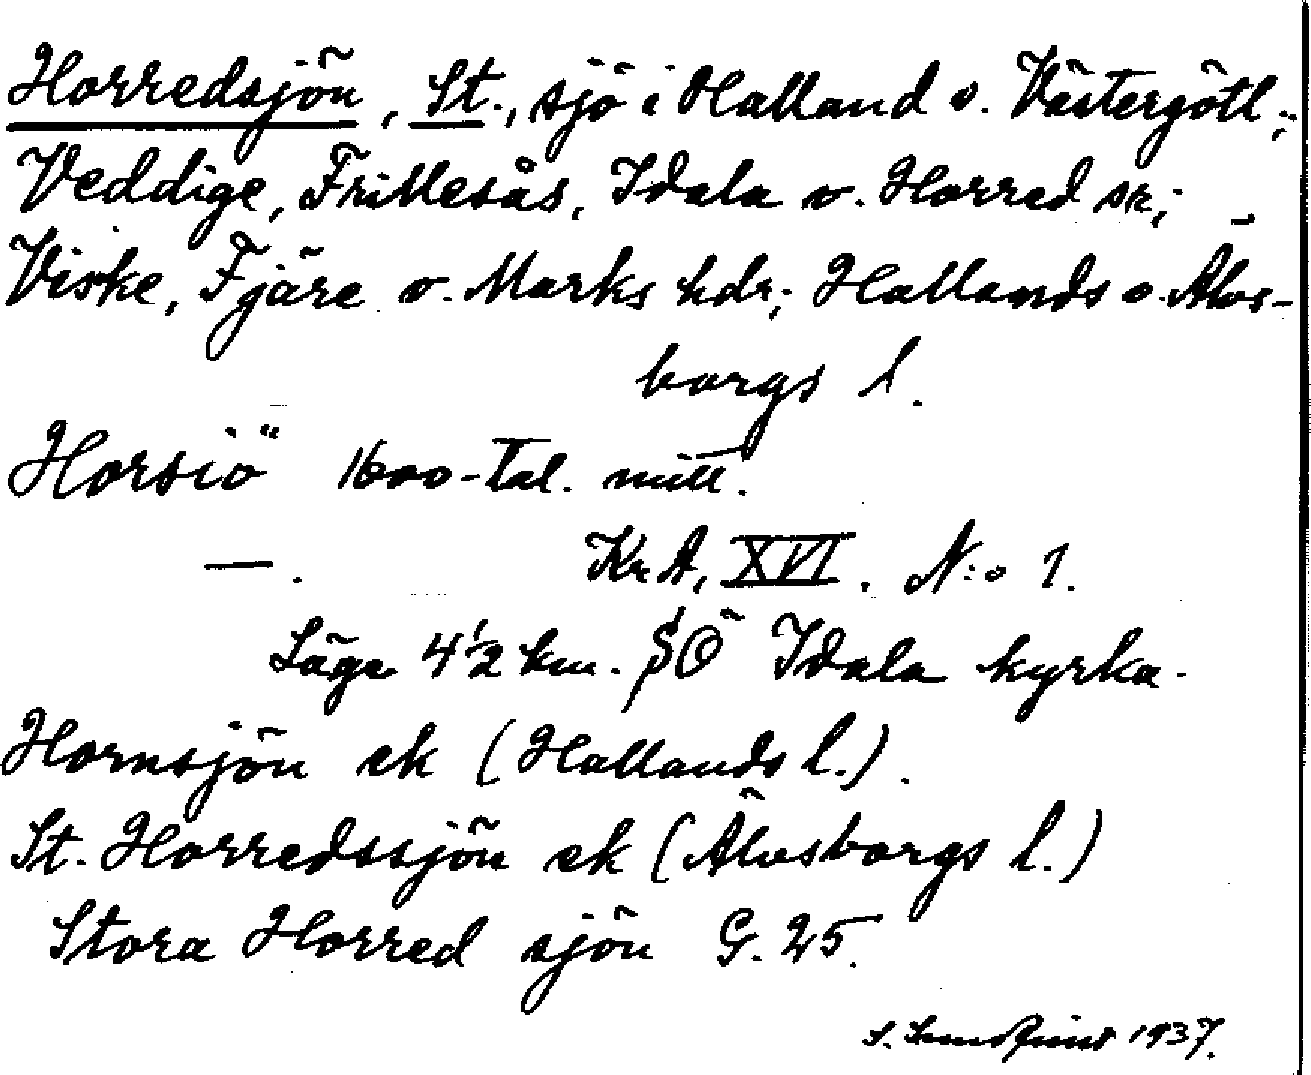 Horredsjön, St., sjö i Halland o. Västergötl.;
Veddige, Frillesås, Idala o. Horred sn;
Viske, Fjäre o. Marks hdr; Hallands o. Älvs-
borgs l.
Horsiö 1600-tal. mitt.
—. KrA, XVI. N:o 1.
Läge 4½ km. SÖ Idala kyrka.
Hornsjön ek (Hallands l.).
St. Horredssjön ek (Älvsborgs l.)
Stora Horred sjön G. 25.
S. 1937.